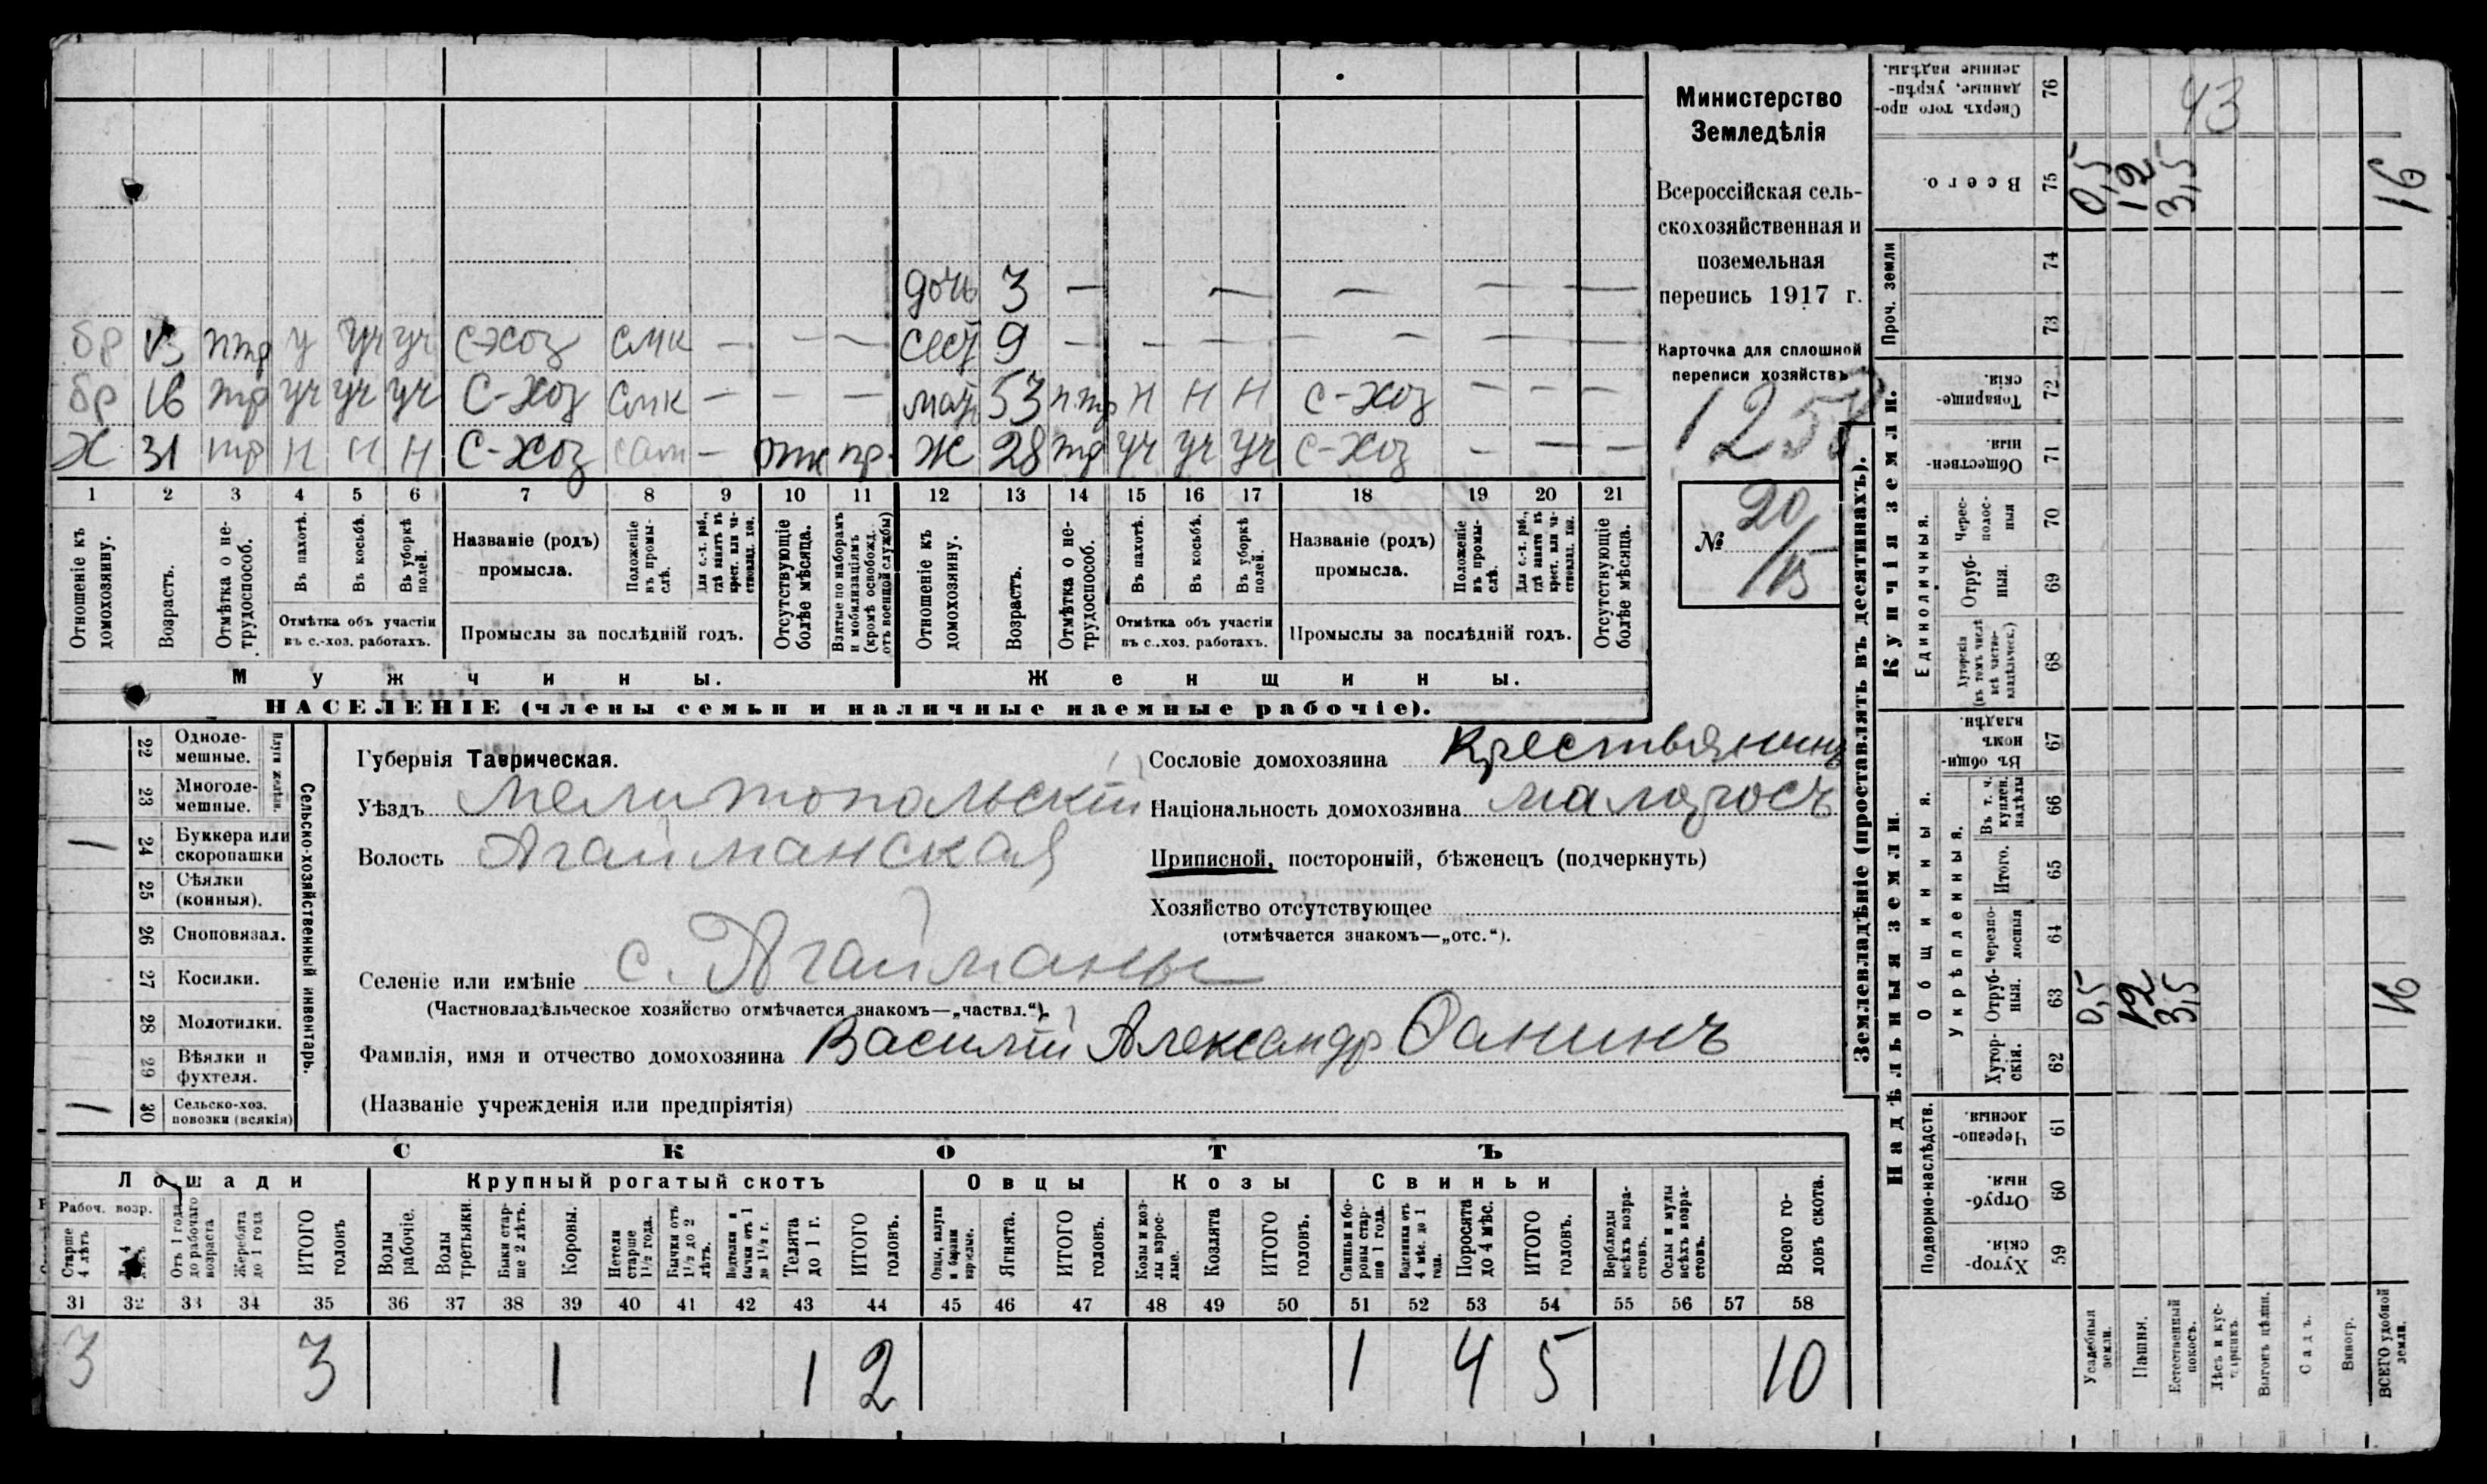 Министерство
Земледѣлія
Всероссійская сель-
скохозяйственная и
поземельная
перепись 1917 г.
Карточка для сплошной
переписи хозяйствъ
№ 20/15
дочь 3 — — — — —
бр 13 птр у уч уч с-хоз смк — — —
сест 9 — — — — — — —
бр 16 тр уч уч уч с-хоз смк — — —
мать 53 п.тр н н н с-хоз — — —
Х 31 тр н н н с-хоз сам — отк пр.
Ж 28 тр уч уч уч с-хоз — — —
1 2 3 4 5 6 7 8 9 10 11 12 13 14 15 16 17 18 19 20 21
Отношеніе къ домохозяину.
Возрастъ.
Отмѣтка о не-трудоспособ.
Въ пахотѣ.
Въ косьбѣ.
Въ уборкѣ полей.
Отмѣтка объ участіи
въ с.-хоз. работахъ.
Названіе (родъ)
промысла.
Положеніе въ промы-слѣ.
Для с.-х. раб., гдѣ занятъ въ крест. или ча-стновлад. хоз.
Промыслы за послѣдній годъ.
Отсутствующіе болѣе мѣсяца.
Взятые по наборамъ и мобилизаціямъ (кромѣ освобожд. отъ военной службы)
Отношеніе къ домохозяину.
Возрастъ.
Отмѣтка о не-трудоспособ.
Въ пахотѣ.
Въ косьбѣ.
Въ уборкѣ полей.
Отмѣтка объ участіи
въ с..хоз. работахъ.
Названіе (родъ)
промысла.
Положеніе въ промы-слѣ.
Для с.-х. раб., гдѣ занята въ крест. или ча-стновлад. хоз.
Промыслы за послѣдній годъ.
Отсутствующіе болѣе мѣсяца.
Мужчины.
Женщины.
НАСЕЛЕНІЕ (члены семьи и наличные наемные рабочіе).
Сельско-хозяйственный инвентарь.
22 Одноле-мешные.
23 Многоле-мешные.
— 24 Буккера или скоропашки
25 Сѣялки (конныя).
26 Сноповязал.
27 Косилки.
28 Молотилки.
29 Вѣялки и фухтеля.
1 30 Сельско-хоз. повозки (всякія)
Губернія Таврическая.
Уѣздъ Мелитопольскій
Волость Агайманская
Селеніе или имѣніе с. Агайманы
(Частновладѣльческое хозяйство отмѣчается знакомъ—„частвл.“).
Фамилія, имя и отчество домохозяина Василій Александр Фанинъ
(Названіе учрежденія или предпріятія)
Сословіе домохозяина Крестьянинъ
Національность домохозяина малоросъ
Приписной, посторонній, бѣженецъ (подчеркнуть)
Хозяйство отсутствующее
(отмѣчается знакомъ—„отс.“).
СКОТЪ
Лошади
Крупный рогатый скотъ
Овцы
Козы
Свиньи
Рабоч. возр.
Старше 4 лѣтъ
Отъ 1 года до рабочаго возраста
Жеребята до 1 года
ИТОГО головъ
Волы рабочіе.
Волы третьяки.
Быки стар-ше 2 лѣтъ.
Коровы.
Нетели старше 1½ года.
Бычки отъ 1½ до 2 лѣтъ.
Подтелки и бычки отъ 1 до 1½ г.
Телята до 1 г.
ИТОГО головъ.
Овцы, валухи и бараны взрослые.
Ягнята.
ИТОГО головъ.
Козы и коз-лы взрос-лые.
Козлята
ИТОГО головъ.
Свиньи и бо-ровы стар-ше 1 года.
Подсвинки отъ 4 мѣс. до 1 года.
Поросята до 4 мѣс.
ИТОГО головъ.
Верблюды всѣхъ возра-стовъ.
Ослы и мулы всѣхъ возра-стовъ.
Всего го-ловъ скота.
31 32 33 34 35 36 37 38 39 40 41 42 43 44 45 46 47 48 49 50 51 52 53 54 55 56 57 58
3 3 1 1 2 1 4 5 10
Землевладѣніе (проставлять въ десятинахъ).
Надѣльныя земли.
Купчія земли.
Проч. земли
Подворно-наслѣдств.
Общинныя.
Укрѣпленныя.
Единоличныя.
Сверхъ того про-данные, укрѣп-ленные надѣлы. 76 43
Всего. 75 0,5 12 3,5 16
74
73
Товарище-скія. 72
Обществен-ныя. 71
Черес-полос-ныя 70
Отруб-ныя. 69
Хуторскія (въ томъ числѣ всѣ частно-владѣльческ.) 68
Въ общин-номъ владѣн. 67
Въ т. ч. куплен. надѣлы 66
Итого. 65
Черезпо-лосныя 64
Отруб-ныя. 63 0,5 12 3,5 16
Хутор-скія. 62
Черезпо-лосныя. 61
Отруб-ныя. 60
Хутор-скія. 59
Усадебныя земли.
Пашня.
Естественный покосъ.
Лѣсъ и кус-тарникъ.
Выгонъ цѣлин.
Садъ.
Виногр.
ВСЕГО удобной земли.